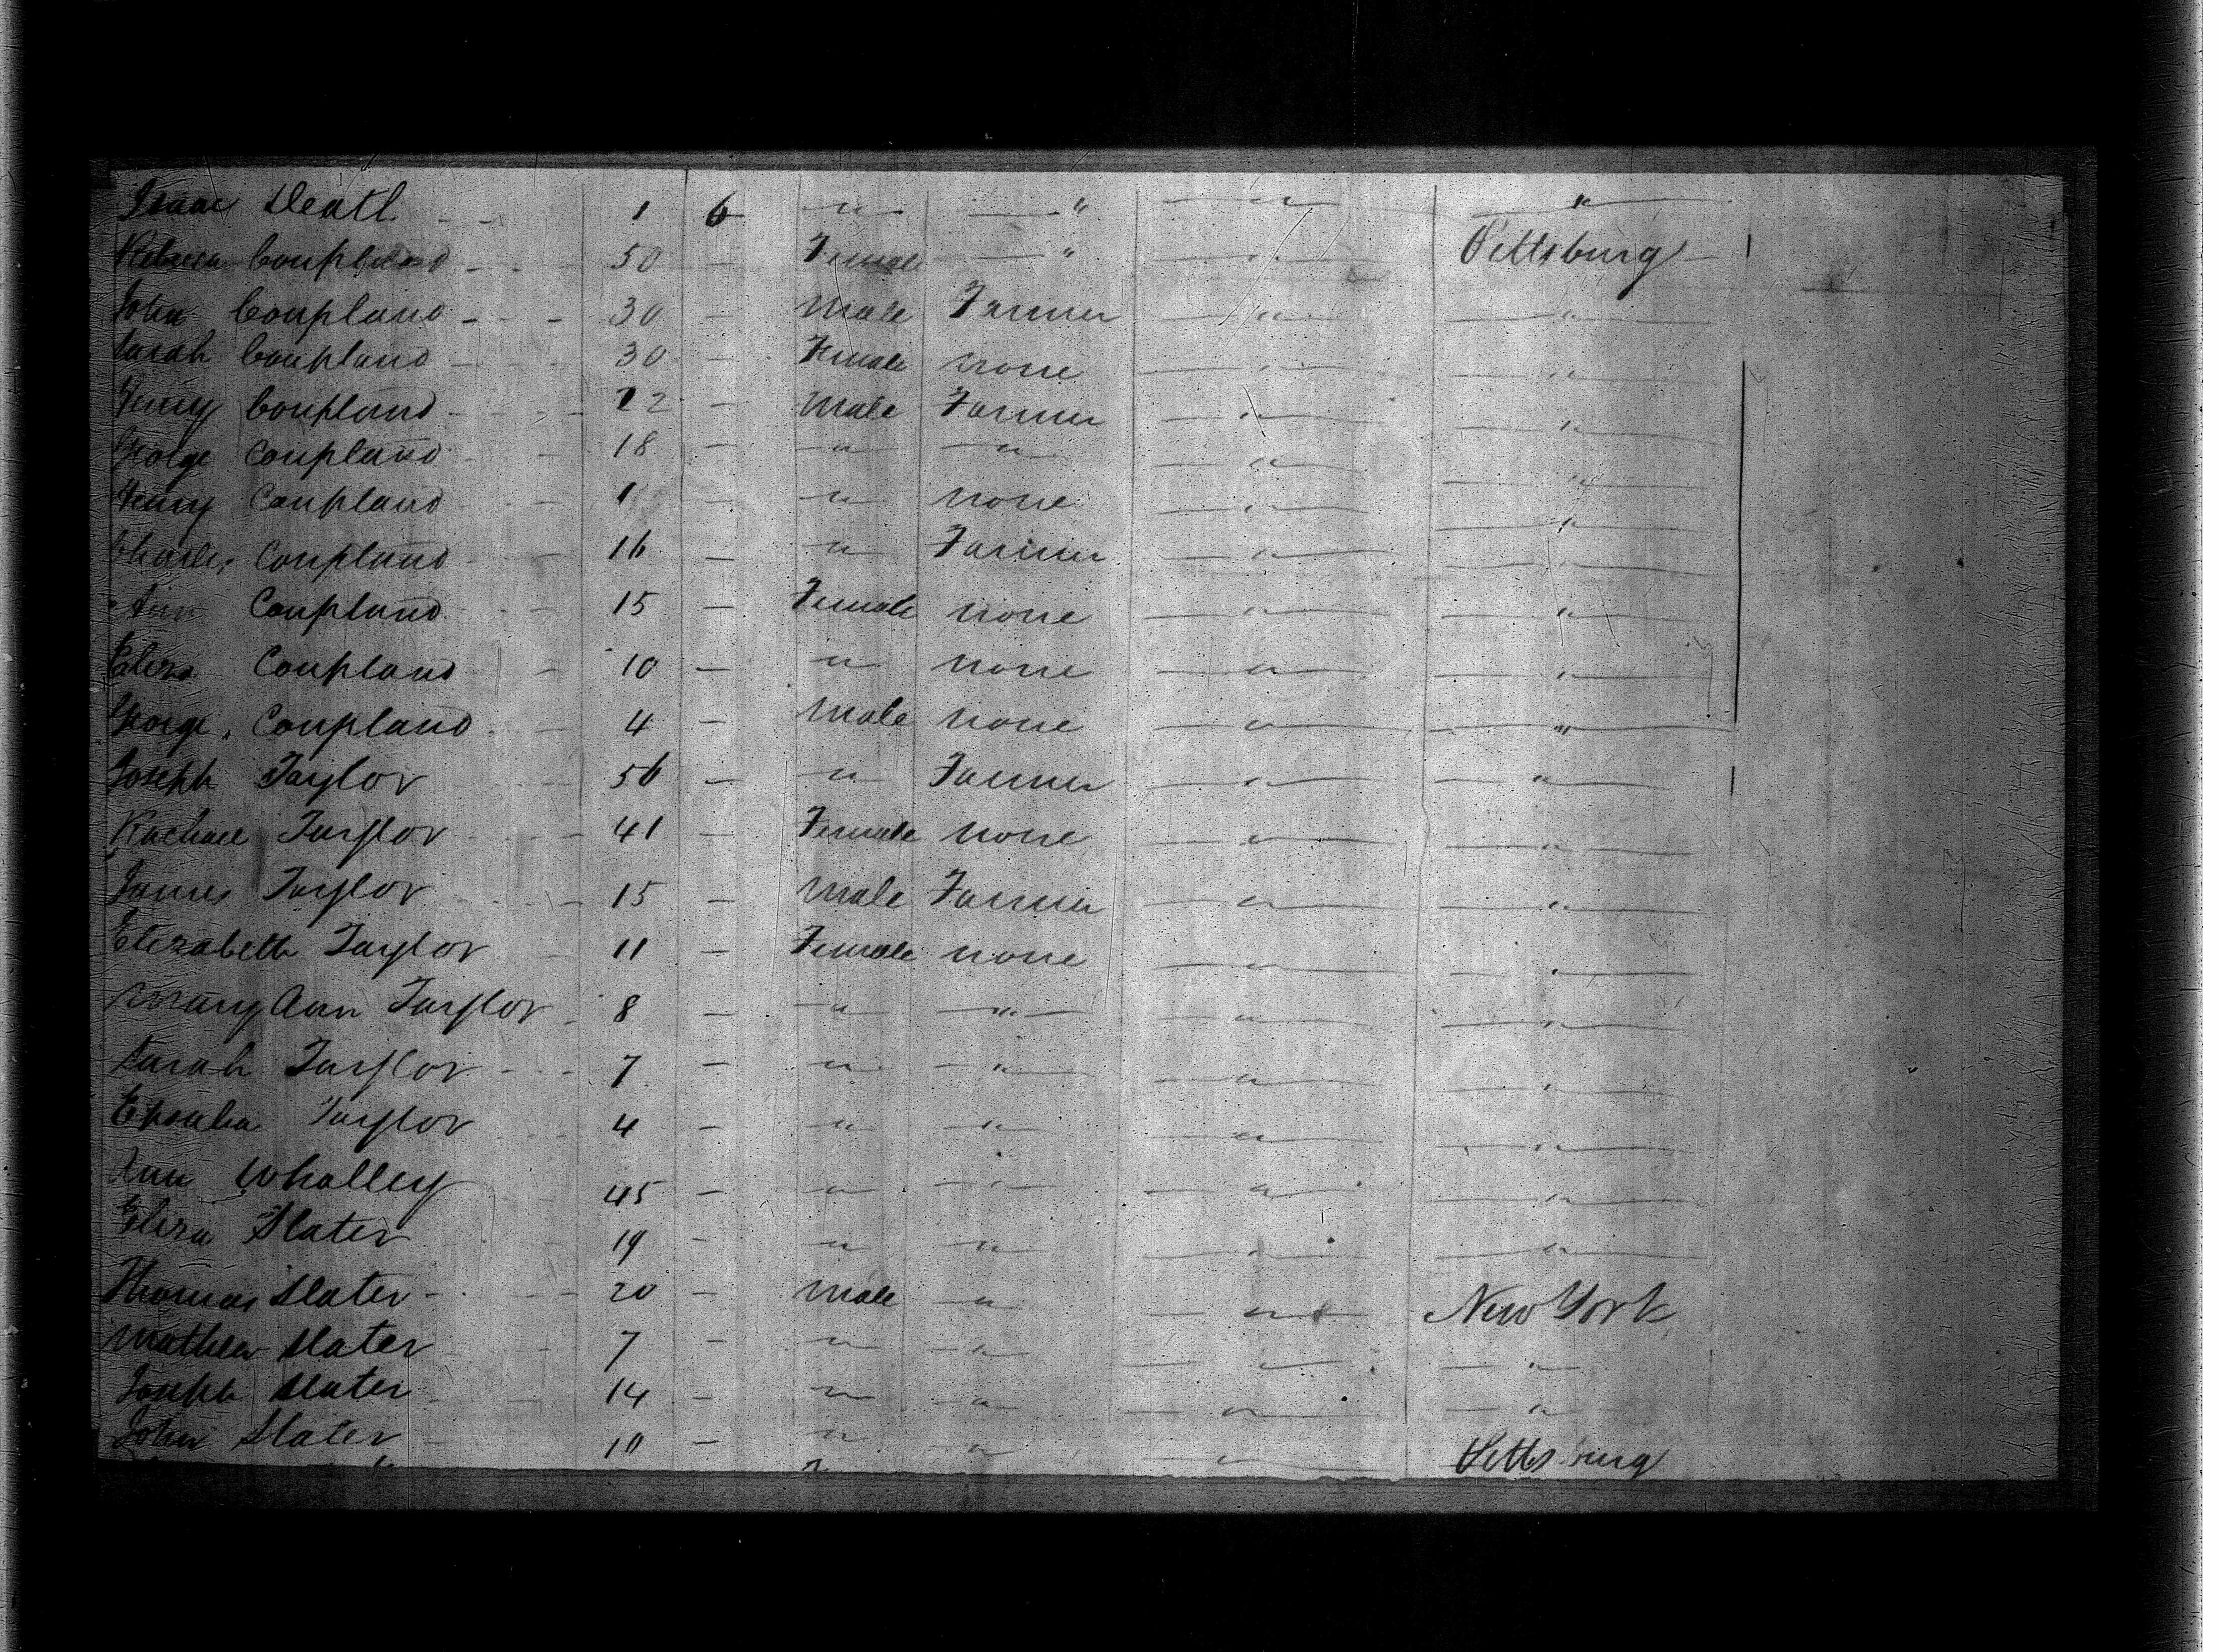 Isaac Death - - 1 6 " " " "
Rebecca Coupland - - 50 - Female " " Pittsburg
John Coupland - - - 30 - Male Farmer " "
Sarah Coupland - - 30 - Female none " "
Henry Coupland - - - 22 - Male Farmer " "
George Coupland - - 18 - " " " "
Henry Coupland - 1 - " none " "
Charles Coupland - - 16 - " Farmer " "
Ann Coupland - - 15 - Female none " "
Eliza Coupland - 10 - " none " "
George Coupland - - 4 - Male none " "
Joseph Taylor 56 - " Farmer " "
Rachael Taylor - - 41 - Female none " "
James Taylor - - 15 - Male Farmer " "
Elizabeth Taylor - 11 - Female none " "
Mary Ann Taylor - 8 - " " " "
Sarah Taylor - - 7 - " " " "
Taylor - 4 - " " " "
Ann Whalley 45 - " " " "
Eliza Slater 19 - " " " "
Thomas Slater - - 20 - Male " " New York
Mathew Slater - 7 - " " " "
Joseph Slater - 14 - " " " "
John Slater - 10 - " " " Pittsburg